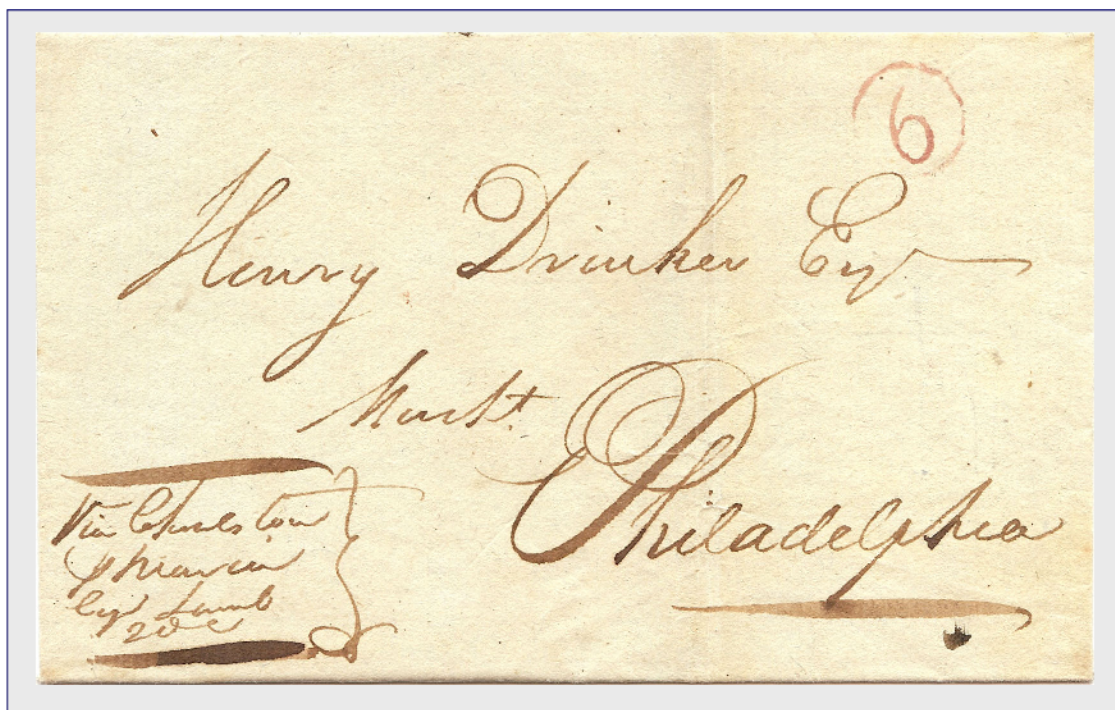 6
Henry Drinker Esqr
Mercht.
Philadelphia
Via Charlestown
p
Capt Lamb